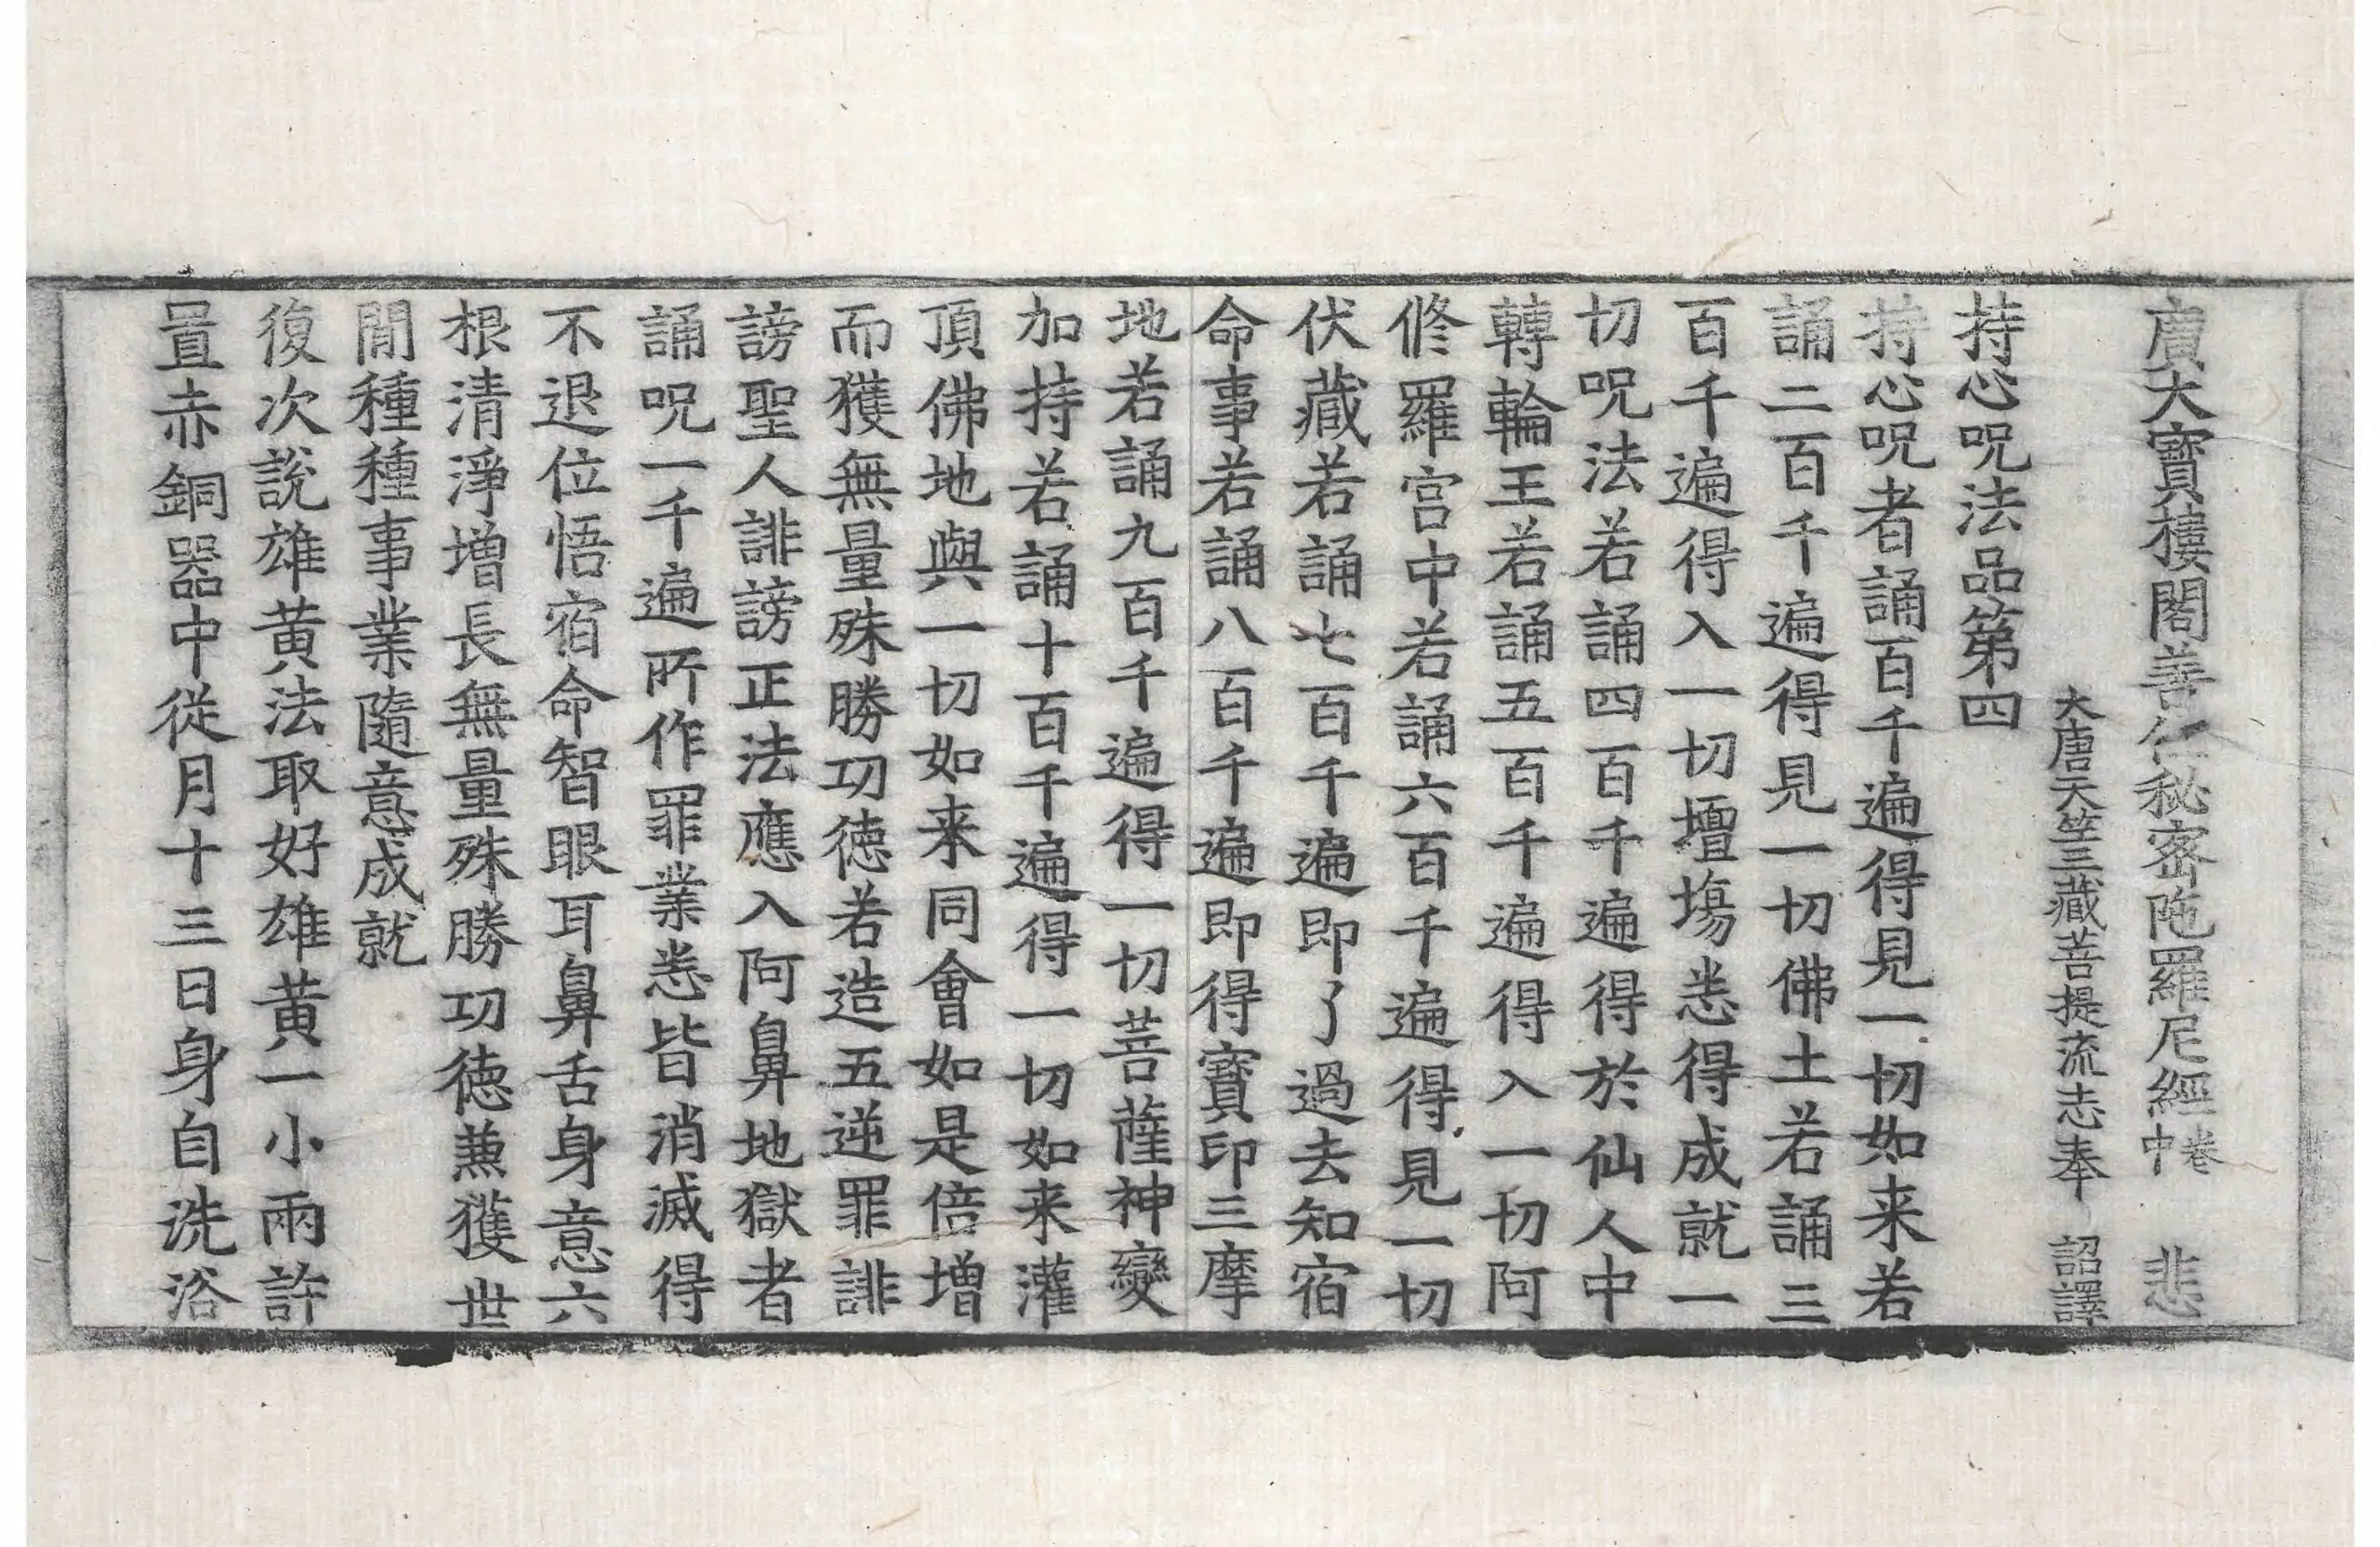 廣大寶樓閣善住秘密陁羅尼經卷中 悲
大唐天竺三藏菩提流志奉 詔譯
持心呪法品第四
持心呪者誦百千遍得見一切如来若
誦二百千遍得見一切佛土若誦三
百千遍得入一切壇塲悉得成就一
切呪法若誦四百千遍得於仙人中
轉輪王若誦五百千遍得入一切阿
修羅宮中若誦六百千遍得見一切
伏藏若誦七百千遍即了過去知宿
命事若誦八百千遍即得寶印三摩
地若誦九百千遍得一切菩薩神變
加持若誦十百千遍得一切如来灌
頂佛地與一切如来同會如是倍增
而獲無量殊勝功徳若造五逆罪誹
謗聖人誹謗正法應入阿鼻地獄者
誦呪一千遍所作罪業悉皆消滅得
不退位悟宿命智眼耳鼻舌身意六
根清淨增長無量殊勝功徳兼獲世
閒種種事業隨意成就
復次說雄黃法取好雄黃一小兩許
置赤銅器中從月十三日身自洗浴